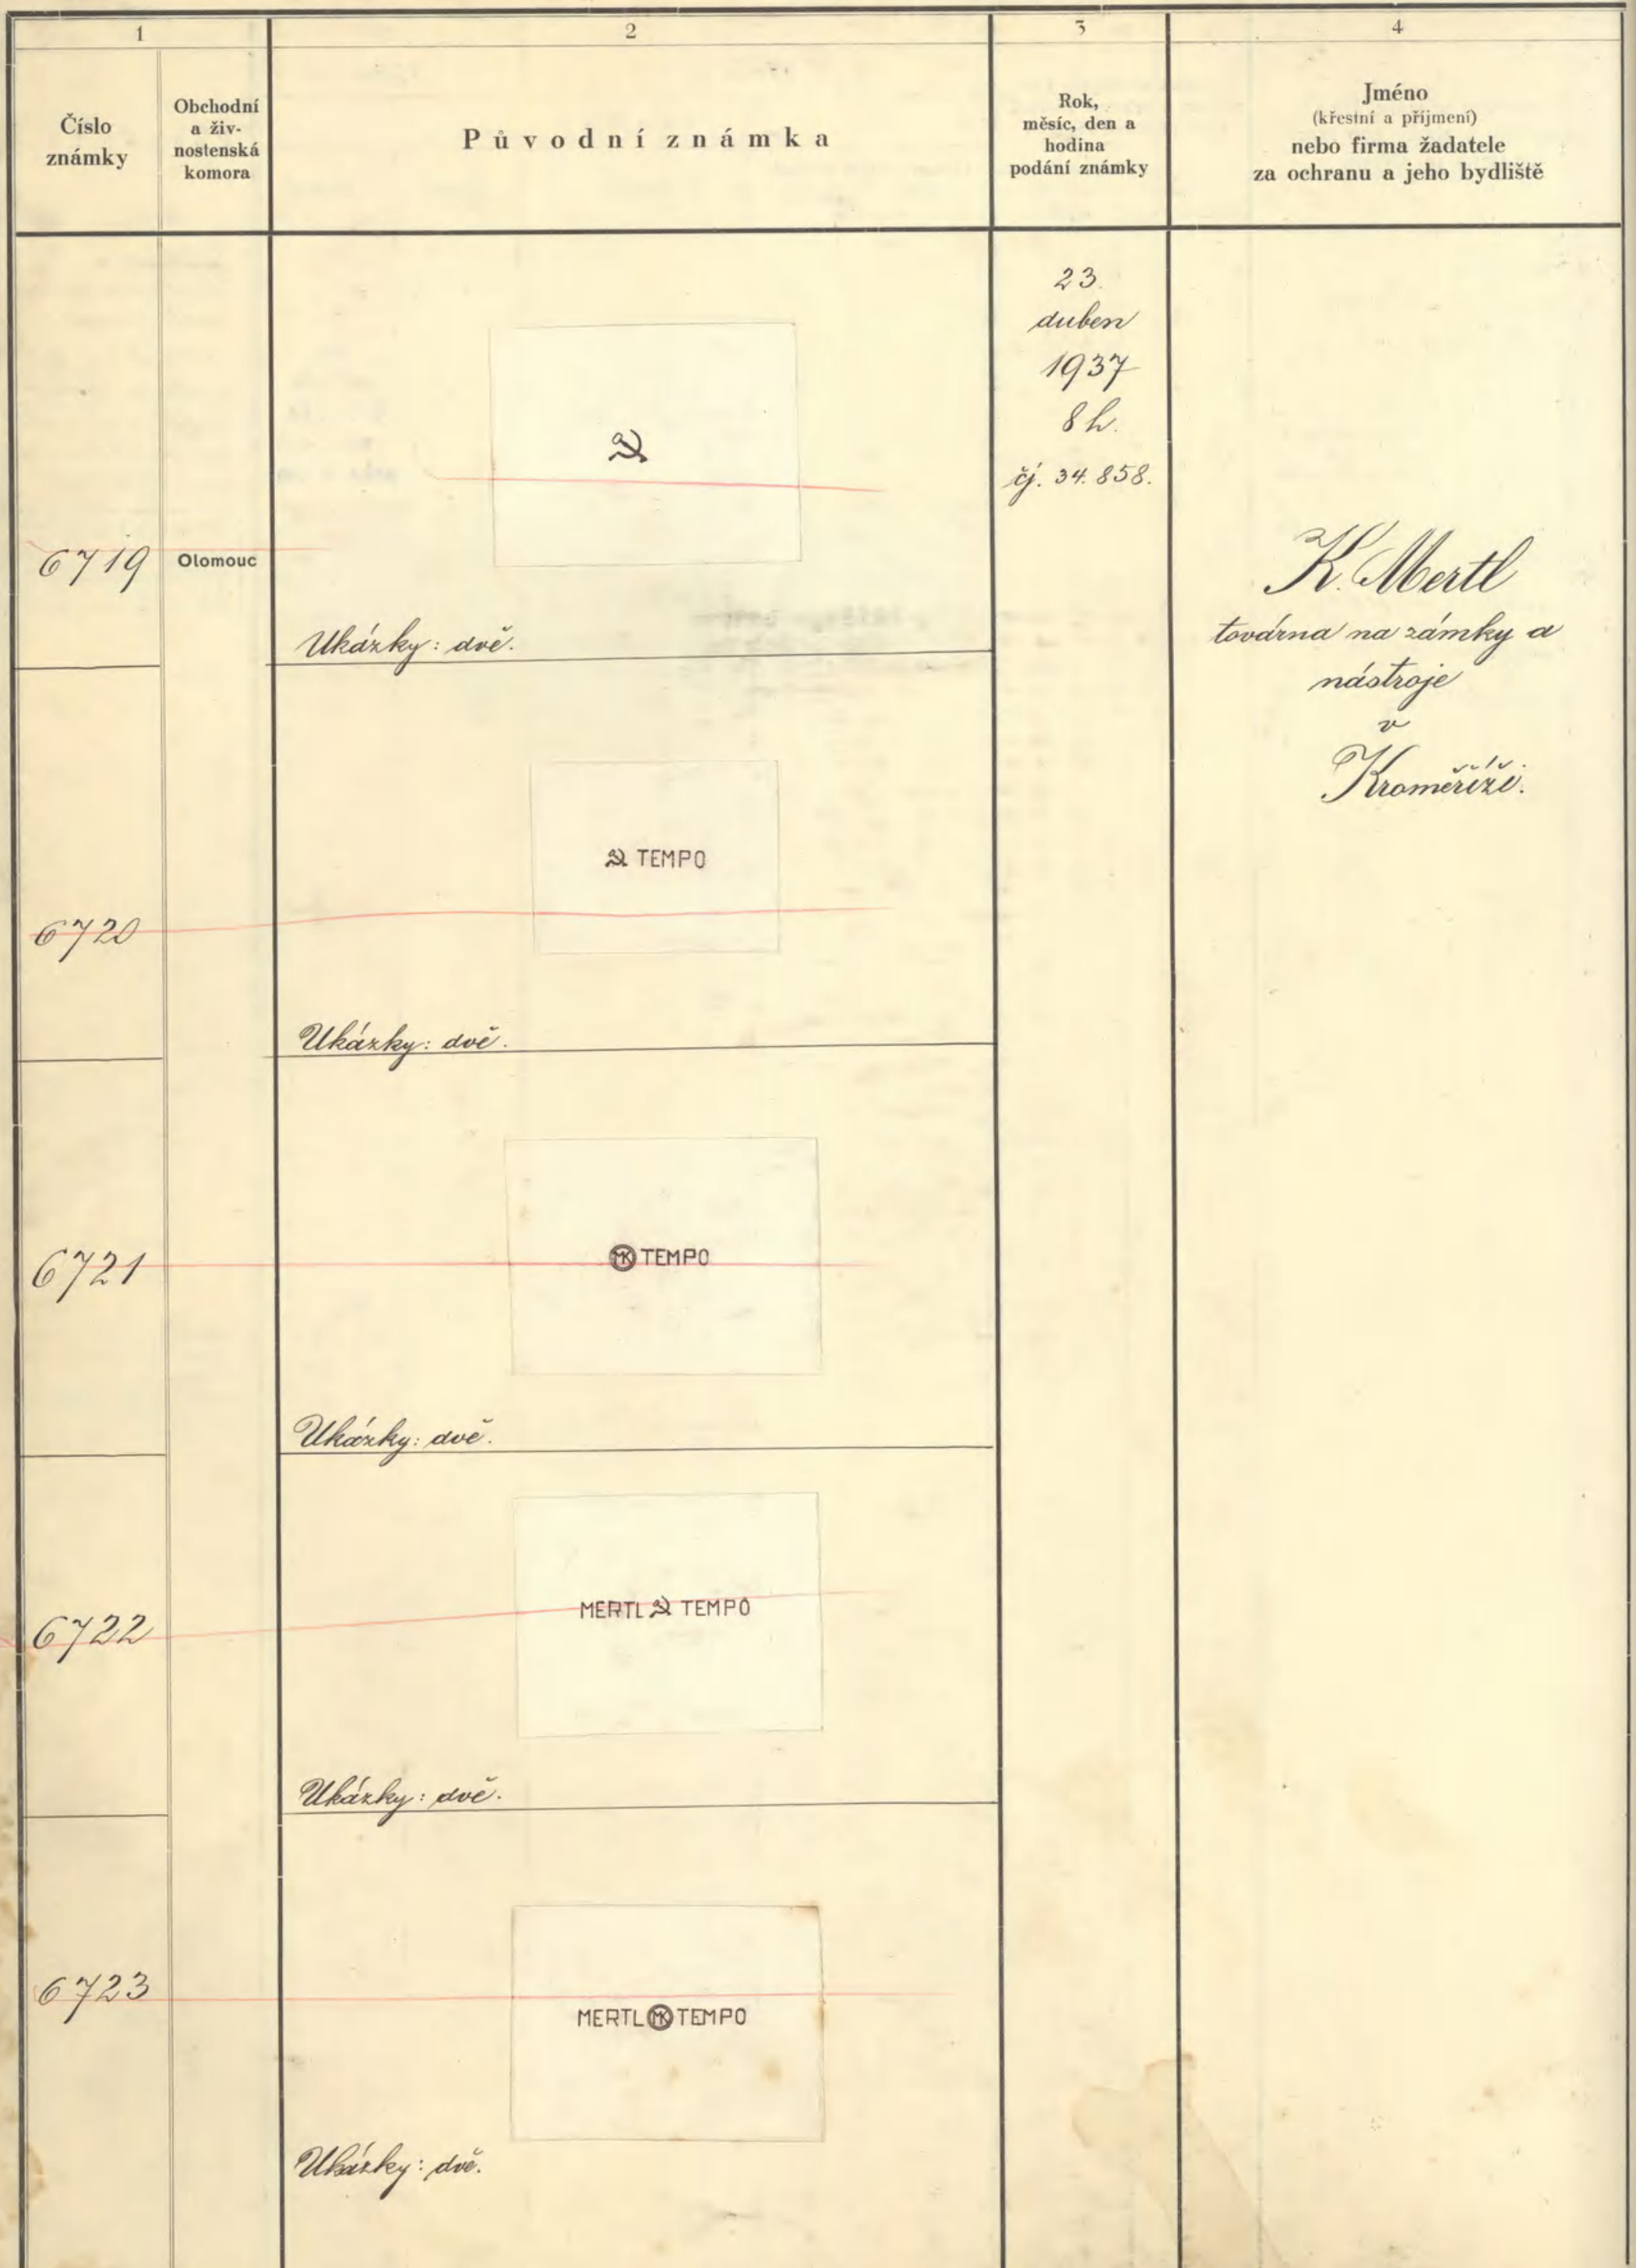 1
2
3
4
Číslo
známky
Obchodní
a živ-
nostenská
komora
Původní známka
Rok,
měsíc, den a
hodina
podání známky
Jméno
(křestní a příjmení)
nebo firma žadatele
za ochranu a jeho bydliště
23.
duben
1937
8 h.
čj. 34.858.
6719
Olomouc
☭
Ukázky: dvě.
K. Mertl
továrna na zámky a
nástroje
v
Kroměříži.
6720
☭ TEMPO
Ukázky: dvě.
6721
MK TEMPO
Ukázky: dvě.
6722
MERTL ☭ TEMPO
Ukázky: dvě.
6723
MERTL MK TEMPO
Ukázky: dvě.